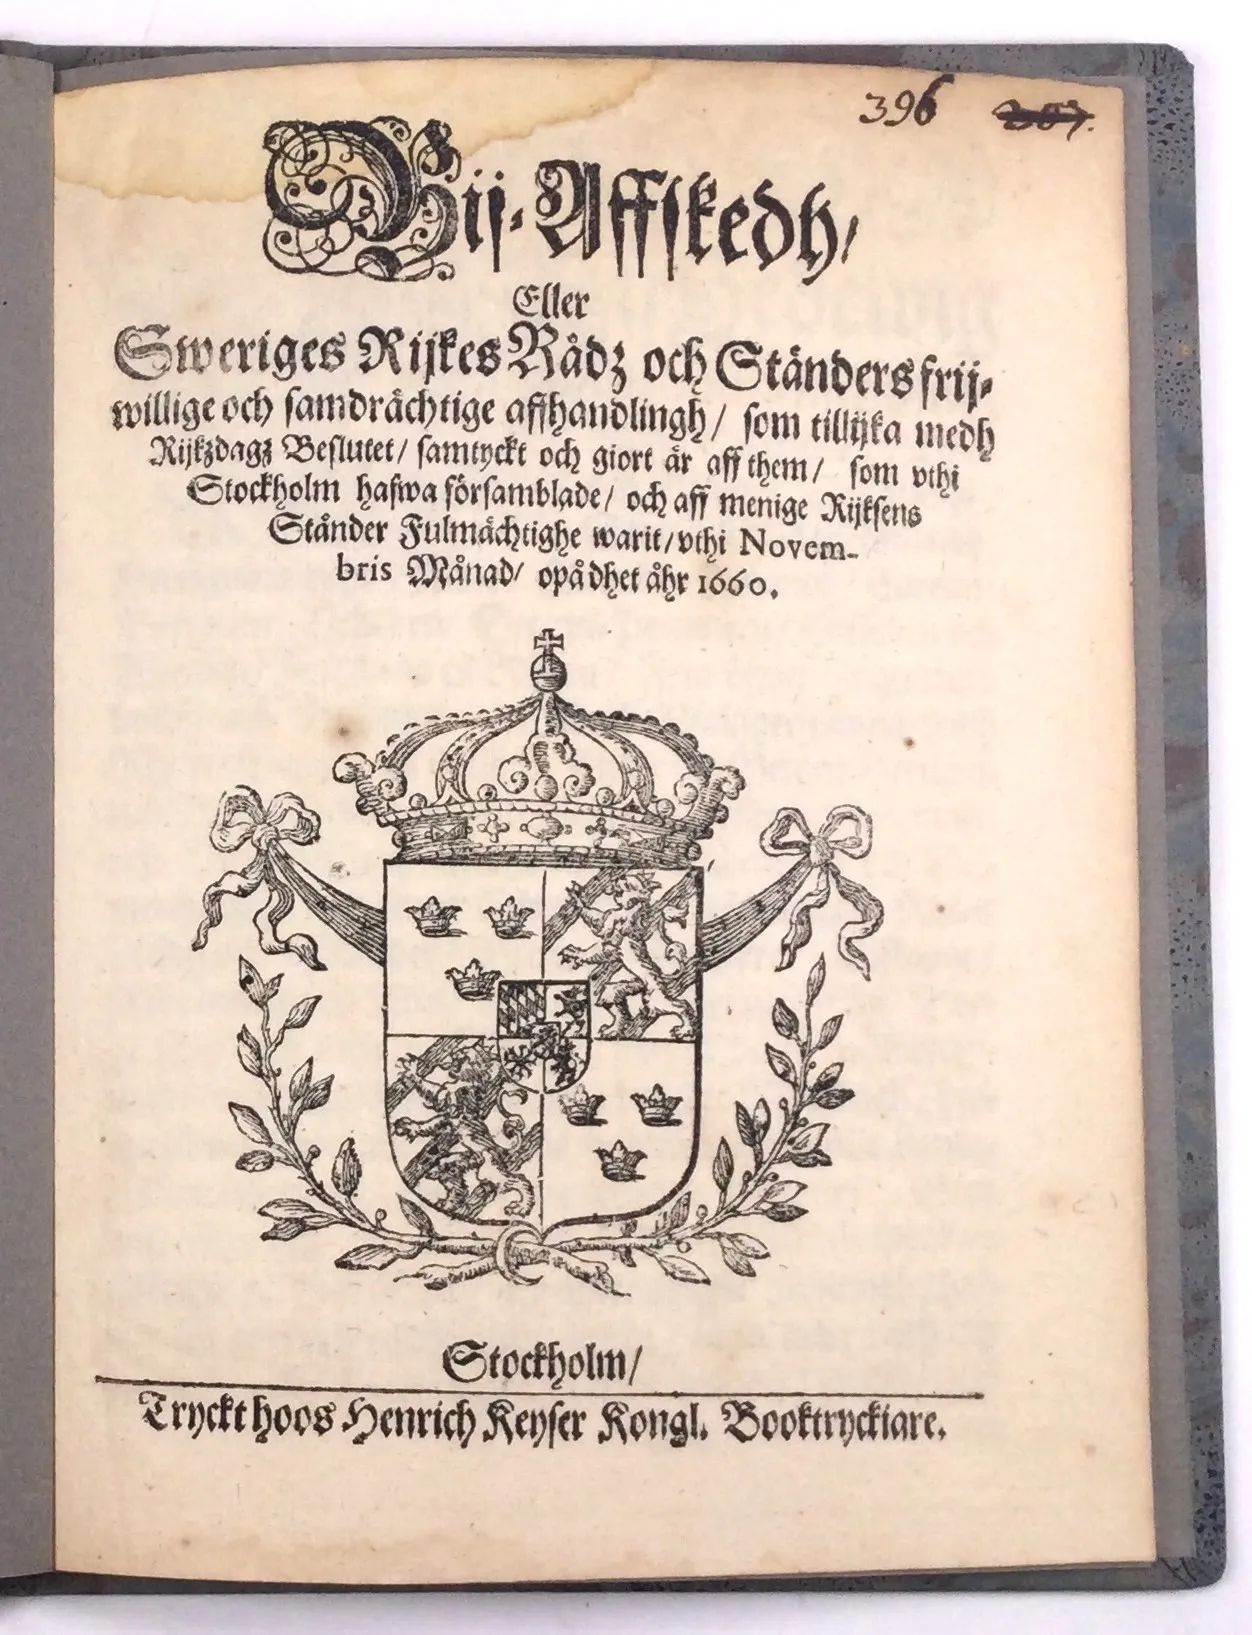 396
Bij-Affskedh/
Eller
Sweriges Rijkes Rådz och Ständers frij-
willige och samdrächtige affhandlingh/ som tillijka medh
Rijkzdagz Beslutet/ samtyckt och giort är aff them/ som vthi
Stockholm hafwa församblade/ och aff menige Rijksens
Ständer Fulmächtighe warit/ vthi Novem-
bris Månad/ opå dhet åhr 1660.
Stockholm/
Tryckt hoos Henrich Keyser Kongl. Booktryckiare.